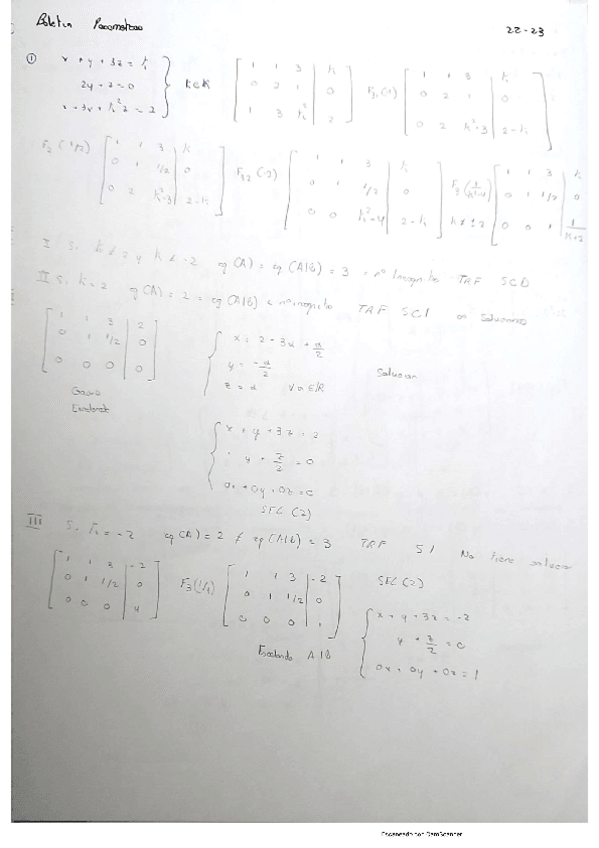 Boletín Parametros 22-23
① x + y + 3z = k
2y + z = 0
x + 3y + k² z = 2
k ∈ R
[1 1 3 | k; 0 2 1 | 0; 1 3 k² | 2] F31(-1) [1 1 3 | k; 0 2 1 | 0; 0 2 k²-3 | 2-k]
F2 (1/2) [1 1 3 | k; 0 1 1/2 | 0; 0 2 k²-3 | 2-k] F32 (-2) [1 1 3 | k; 0 1 1/2 | 0; 0 0 k²-4 | 2-k] k ≠ ±2 [1 1 3 | k; 0 1 1/2 | 0; 0 0 1 |
I S. k ≠ 2 y k ≠ -2 rg(A) = rg(A|b) = 3 = nº incognitas TRF SCD
II S. k = 2 rg(A) = 2 = rg(A|b) < nº incognitas TRF SCI ∞ soluciones
[1 1 3 | 2; 0 1 1/2 | 0; 0 0 0 | 0]
x = 2 - 3α + α/2
y = -α/2
z = α ∀α ∈ R
Solucion
Gauss
Escalonada
x + y + 3z = 2
y + z/2 = 0
0x + 0y + 0z = 0
SEL (2)
III S. k = -2 rg(A) = 2 ≠ rg(A|b) = 3 TRF SI No tiene solucion
[1 1 3 | -2; 0 1 1/2 | 0; 0 0 0 | 4] F3(1/4) [1 1 3 | -2; 0 1 1/2 | 0; 0 0 0 | 1]
SEL (2)
x + y + 3z = -2
y + z/2 = 0
0x + 0y + 0z = 1
Escalonada A|B
Escaneado con CamScanner